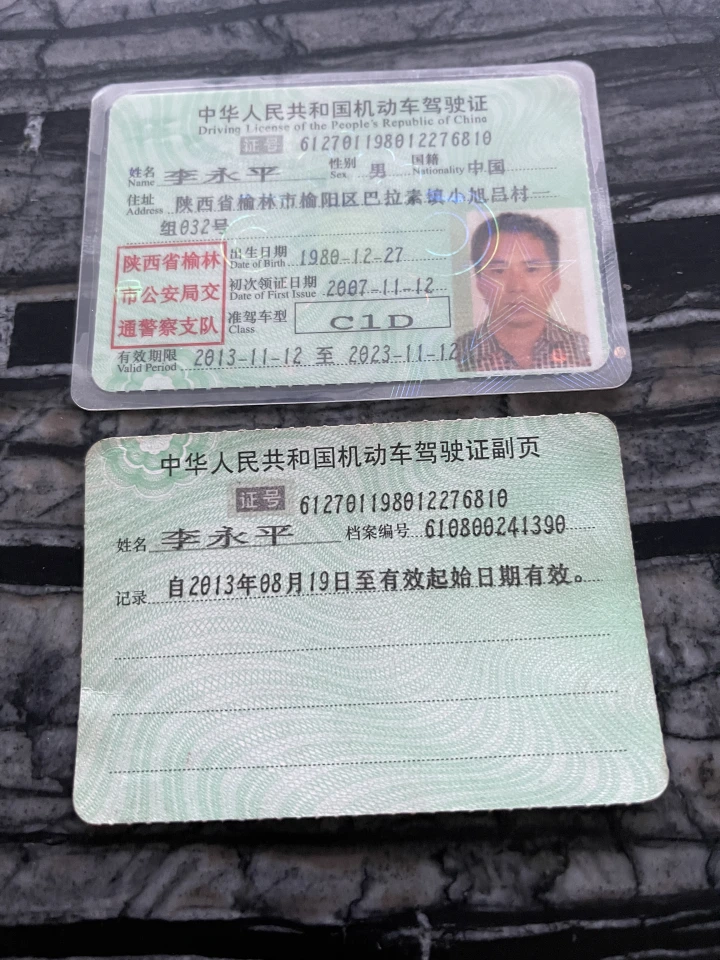 中华人民共和国机动车驾驶证
Driving License of the People's Republic of China
证号 612701198012276810
姓名 李永平 性别 男 国籍 中国
Name Sex Nationality
住址 陕西省榆林市榆阳区巴拉素镇小旭吕村一
Address
组032号
陕西省榆林
市公安局交
通警察支队
出生日期 1980-12-27
Date of Birth
初次领证日期 2007-11-12
Date of First Issue
准驾车型 C1D
Class
有效期限 2013-11-12 至 2023-11-12
Valid Period
中华人民共和国机动车驾驶证副页
证号 612701198012276810
姓名 李永平 档案编号 610800241390
记录 自2013年08月19日至有效起始日期有效。